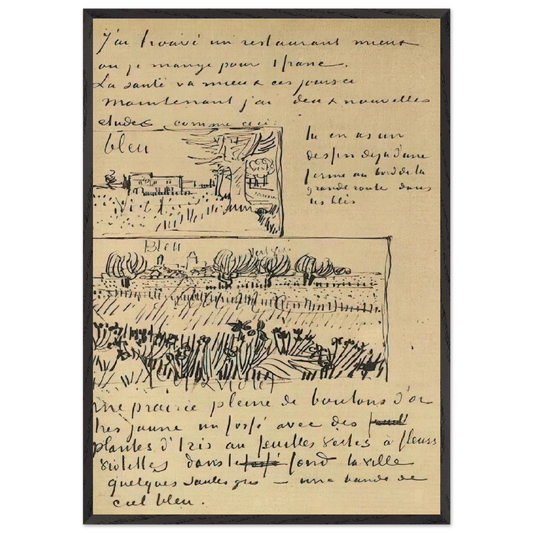 J'ai trouvé un restaurant mieux
ou je mange pour 1 franc.
La santé va mieux ces jours ci
maintenant j'ai deux nouvelles
etudes comme ceci
bleu
tu en as un
dessin deja d'une
ferme au bord de la
grande route dans
les blés
Bleu
violet
une prairie pleine de boutons d'or
tres jaune un fossé avec des
plantes d'Iris au feuilles vertes à fleurs
violettes dans le fond la ville
quelques saules gris – une bande de
ciel bleu.